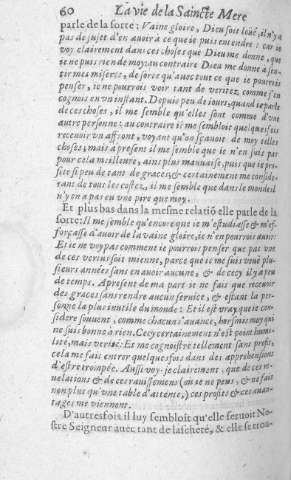 60 La vie de la Saincte Mere
parle de la sorte: Vaine gloire, Dieu soit loüé, il n'y a
pas de sujet d'en auoir à ce que ie puis entendre: car ie
voy clairement dans ces choses que Dieu me donne, que
ie ne puis rien de moy; au contraire Dieu me donne à sen-
tir mes miseres, de sorte qu'auec tout ce que ie pourrois
penser, ie ne pourrois voir tant de veritez, comme i'en
cognois en vn instant. Depuis peu de iours, quand ie parle
de ces choses, il me semble qu'elles sont comme d'vne
autre personne: au contraire il me sembloit quelquesfois
receuoir vn affront, voyant qu'on sçauoit de moy telles
choses, mais à present il me semble que ie n'en suis pas
pour cela meilleure, ains plus mauuaise, puis que ie pro-
fite si peu de tant de graces, & certainement me conside-
rant de tous les costez, il me semble que dans le monde il
n'y en a pas eu vne pire que moy.
Et plus bas dans la mesme relatiõ elle parle de la
sorte: Il me semble qu'encore que ie m'estudiasse & m'ef-
forçasse d'auoir de la vaine gloire, ie n'en pourrois auoir:
Et ie ne voy pas comment ie pourrois penser que pas vne
de ces vertus soit mienne, parce que ie me suis veuë plu-
sieurs années sans en auoir aucune, & de cecy il y a peu
de temps. A present de ma part ie ne fais que receuoir
des graces sans rendre aucun seruice, & estant la per-
sonne la plus inutile du monde: Et il est vray, que ie con-
sidere souuent, comme chacun s'auance, horsmis moy qui
ne suis bonne à rien. Cecy certainement n'est point humi-
lité, mais verité: Et me cognoistre tellement sans profit,
cela me fait entrer quelquesfois dans des apprehensions
d'estre trompée. Aussi voy-je clairement, que de ces re-
uelations & de ces rauissemens (où ie ne peux, & ne fait
non plus qu'vne table d'attente,) ces profits & ces auan-
tages me viennent.
D'autresfois il luy sembloit qu'elle seruoit No-
stre Seigneur auec tant de lascheté, & elle se trou-